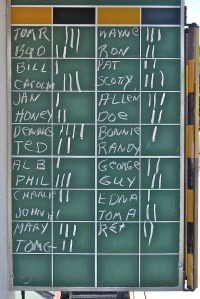 TOM R ||| WAYNE |||
BOO || RON ||
BILL | PAT |
CAROLYN ||| SCOTTY |||
JAN | ALLEN ||
HONEY || DOE ||
DENNIS |||| BONNIE |
TED || RANDY
AL B | GEORGE ||
PHIL ||| GUY |||
CHARLIE || EDNA |
JOHN | TOM A ||
MARY ||| REX ||
TOM G ||